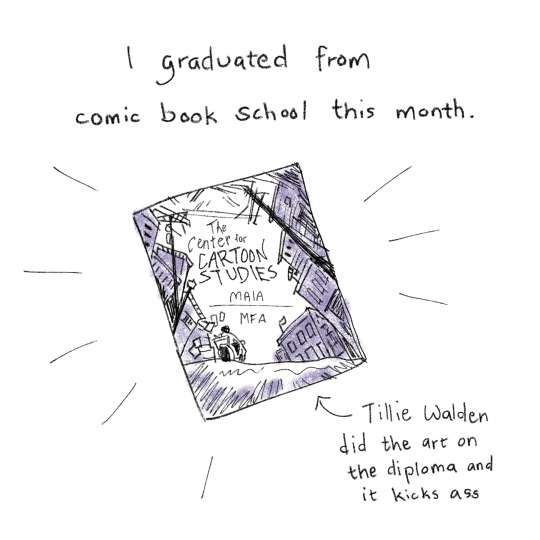 I graduated from
comic book school this month.
The
Center for
CARTOON
STUDIES
MAIA
MFA
Tillie Walden
did the art on
the diploma and
it kicks ass